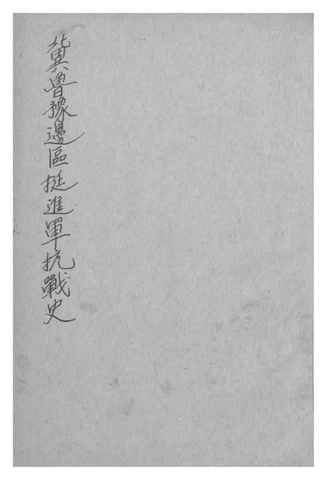 冀魯豫邊區挺進軍抗戰史